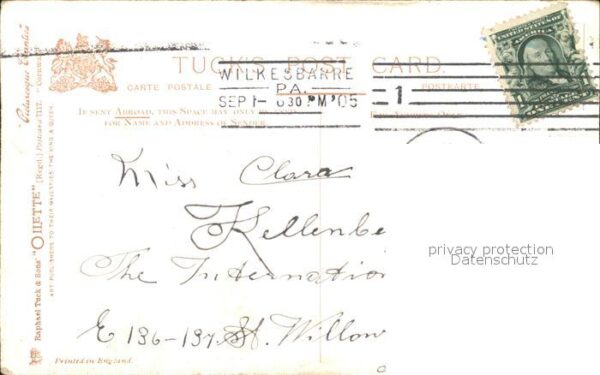 TUCK'S POST CARD.
CARTE POSTALE POSTKARTE
WILKESBARRE
PA.
SEP 1- 630 PM '05
1
IF SENT ABROAD, THIS SPACE MAY ONLY
FOR NAME AND ADDRESS OF SENDER.
Miss Clara
Kellenbe
The Internatio
E 136-137 St. Willow
privacy protection
Datenschutz
Raphael Tuck & Sons' "OILETTE" [Regd.] Postcard 7117.
ART PUBLISHERS TO THEIR MAJESTIES THE KING & QUEEN.
Printed in England.